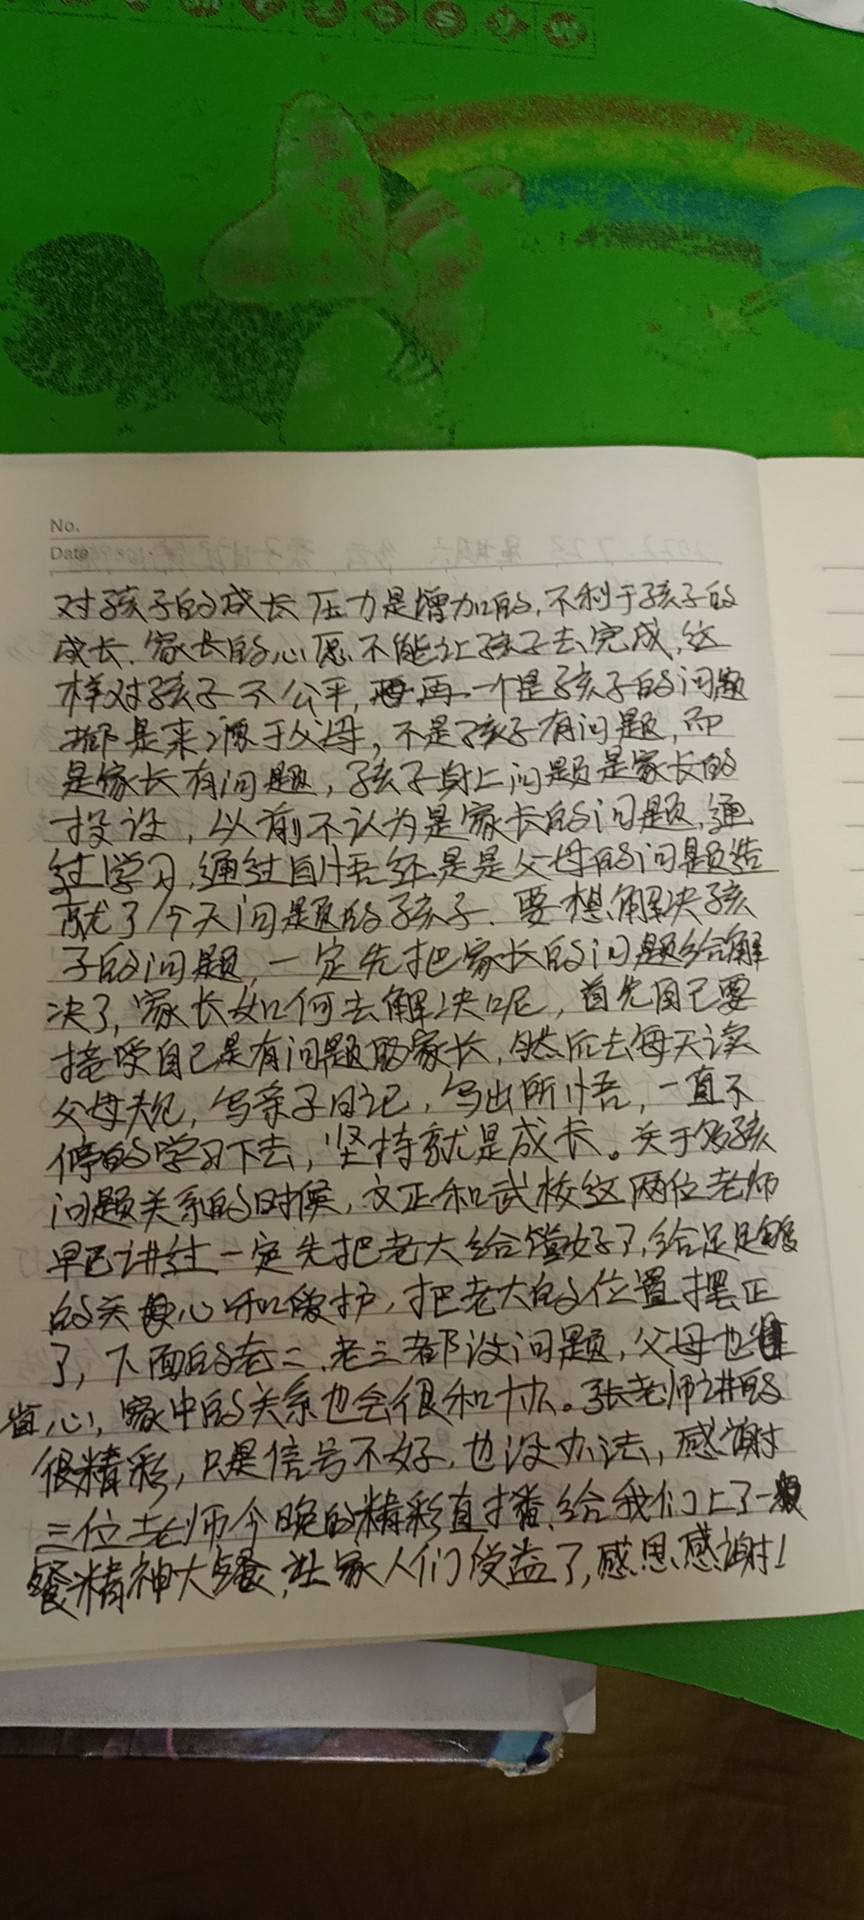 W F J C S Y W
No.
Date
对孩子的成长压力是增加的,不利于孩子的
成长.家长的心愿不能让孩子去完成,这
样对孩子不公平,再一个是孩子的问题
都是来源于父母,不是孩子有问题,而
是家长有问题,孩子身上问题是家长的
投设,以前不认为是家长的问题,通
过学习,通过自悟还是是父母的问题造
就了今天问题的孩子.要想解决孩
子的问题,一定先把家长的问题给解
决了,家长如何去解决呢,首先自己要
接受自己是有问题的家长,然后去每天读
父母规,写亲子日记,写出所悟,一直不
停的学习下去,坚持就是成长。关于多孩
问题关系的时候,文正和武校这两位老师
早已讲过一定先把老大给管好了,给足足够
的关心和爱护,把老大的位置摆正
了,下面的老二.老三都没问题,父母也
省心,家中的关系也会很和协。张老师讲的
很精彩,只是信号不好,也没办法,感谢
三位老师今晚的精彩直播,给我们上了一
餐精神大餐,让家人们受益了,感恩感谢!